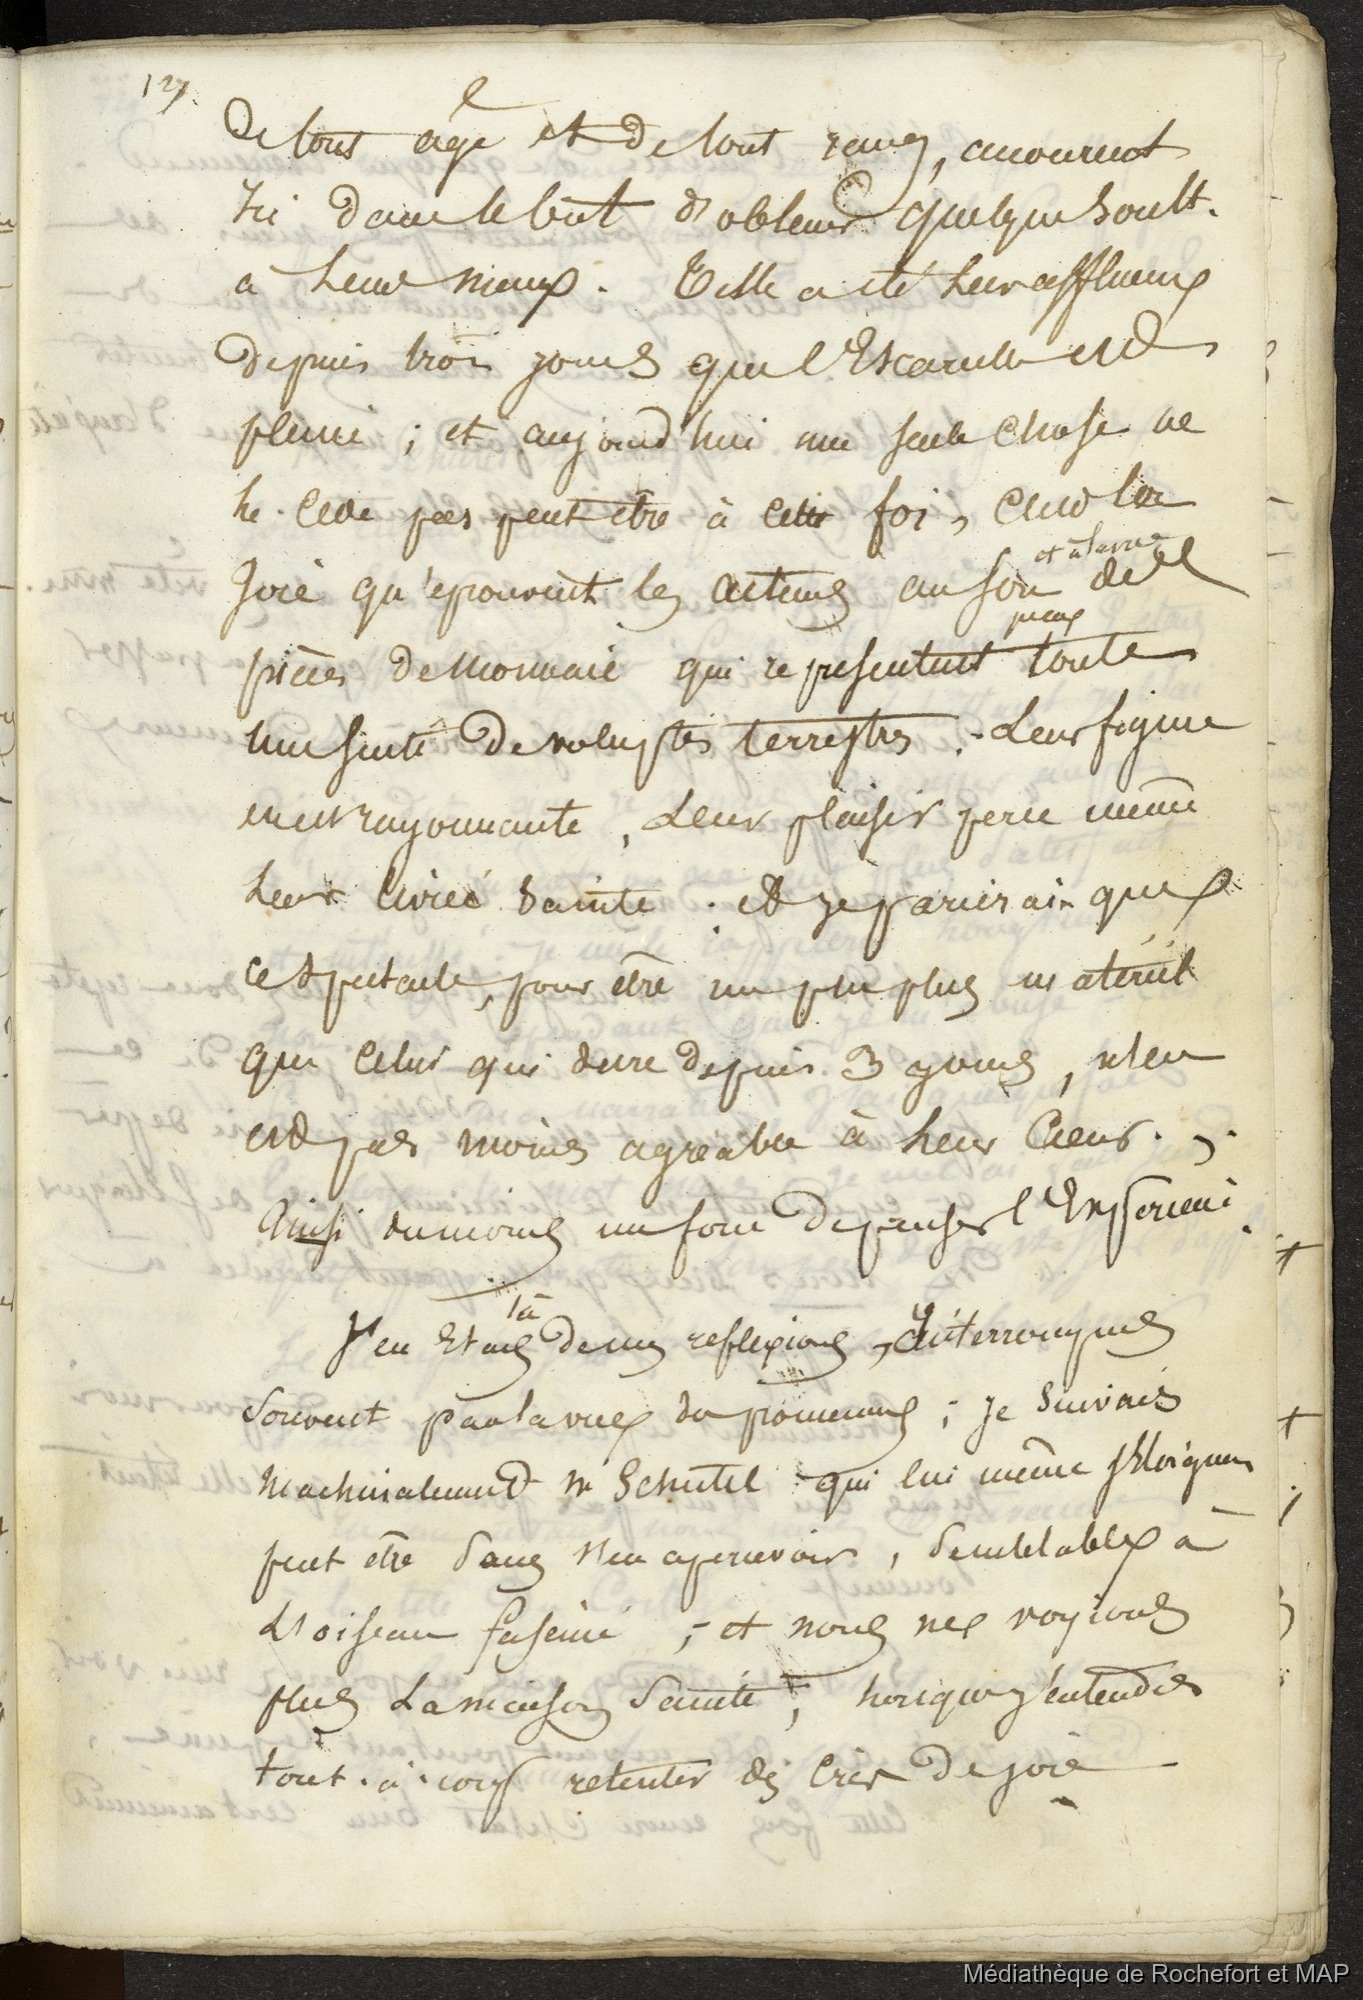 127.
De tout âge et de tout rang, accourent
Ici dans le but d'obtenir quelque soult.
à leurs maux. Telle a été leur affluence
depuis trois jours que l'Escarcelle est
pleine ; et aujourd'hui une seule chose ne
le cede pas peut etre à cette foi, c'est la
Joie qu'eprouvent les acteurs au son et à la vue des
pièces de Monnaie qui representent pour toute
une suite de voluptés terrestres. Leur figure
en est rayonnante, Leur plaisir perce même
leur livrée Sainte. et je parierais que
ce spectacle, pour être un peu plus matériel
que celui qui dure depuis 3 jours, n'en
est pas moins agréable à leur Cœur.
Ainsi du moins me font penser l'Expérience.
J'en Etais là de mes reflexions, interrompues
souvent par la vue de promeneurs ; je suivais
Machinalement Mr Schutel qui lui même s'Eloignait
peut être sans s'en apercevoir, semblable à
L'oiseau fasciné ; et nous ne voyions
plus La maison Sainte, lorsque j'entendis
tout-à-coup retentir des Cris de joie
Médiathèque de Rochefort et MAP